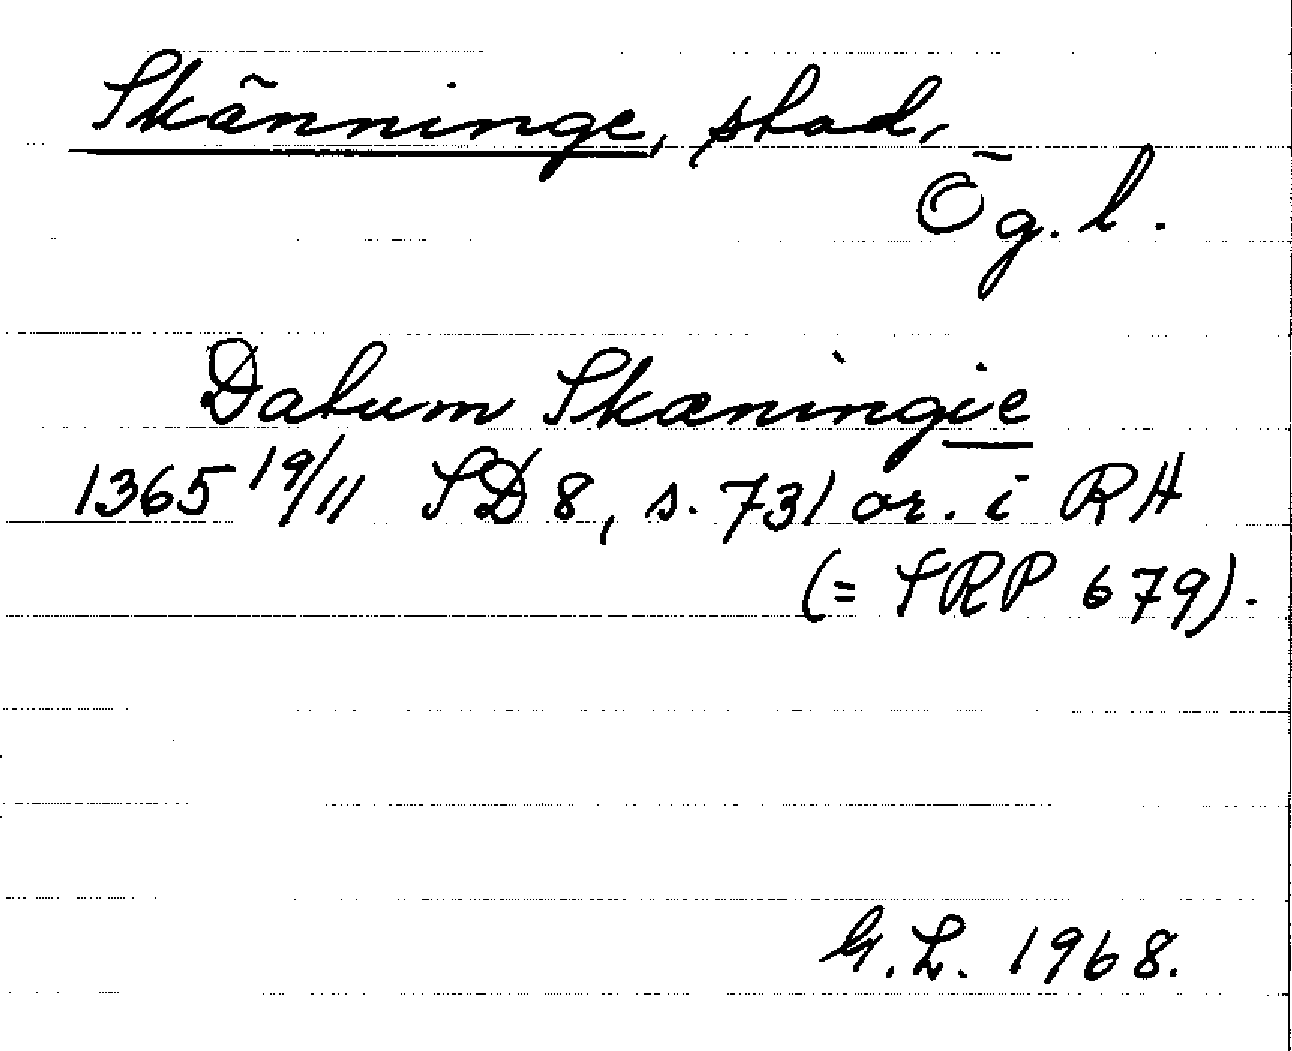 Skänninge, stad,
Ög. l.
Datum Skæningie
1365 19/11 SD 8, s. 731 or. i RH
(= SRP 679).
G.L. 1968.